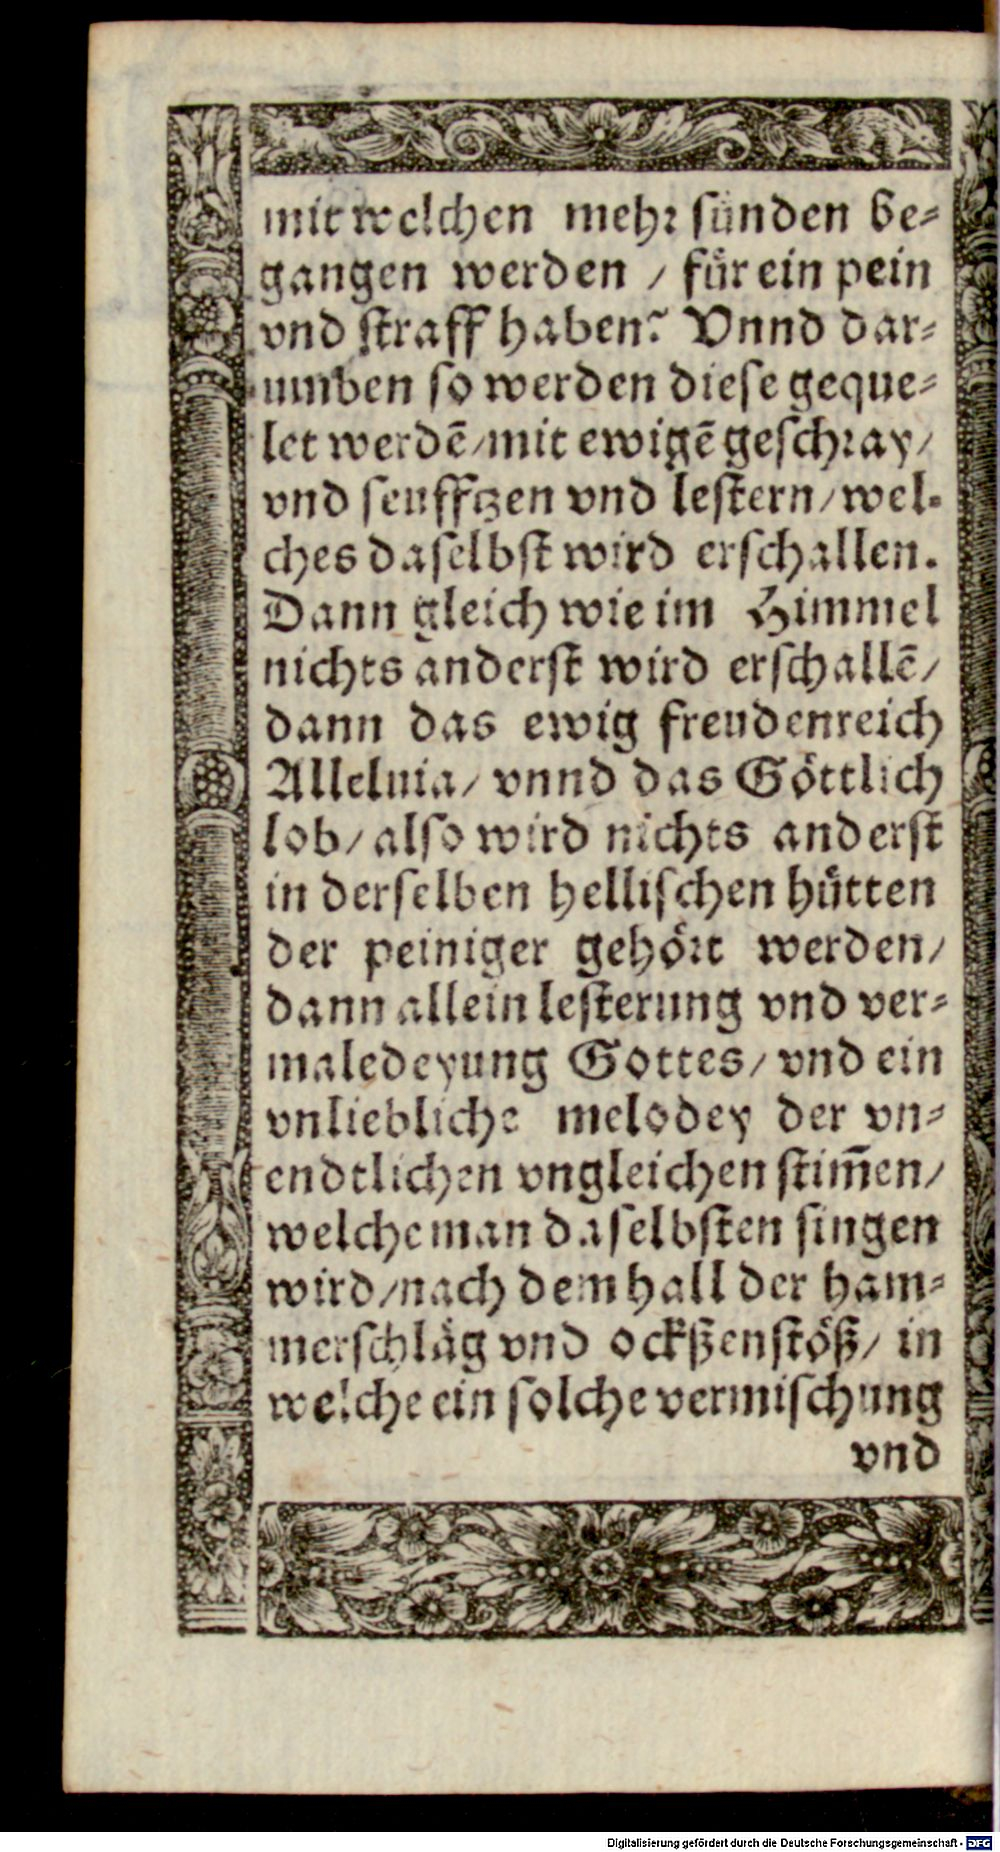 mit welchen mehr sünden be-
gangen werden / für ein pein
vnd straff haben? Vnnd dar-
umben so werden diese geque-
let werdē/mit ewigē geschray/
vnd seufftzen vnd lestern/wel-
ches daselbst wird erschallen.
Dann gleich wie im Himmel
nichts anderst wird erschallē/
dann das ewig freudenreich
Alleluia/ vnnd das Göttlich
lob/ also wird nichts anderst
in derselben hellischen hütten
der peiniger gehört werden/
dann allein lesterung vnd ver-
maledeyung Gottes/ vnd ein
vnliebliche melodey der vn-
endtlichen vngleichen stim̄en/
welche man daselbsten singen
wird/nach dem hall der ham-
merschläg vnd ockßenstöß/ in
welche ein solche vermischung
vnd
Digitalisierung gefördert durch die Deutsche Forschungsgemeinschaft - DFG